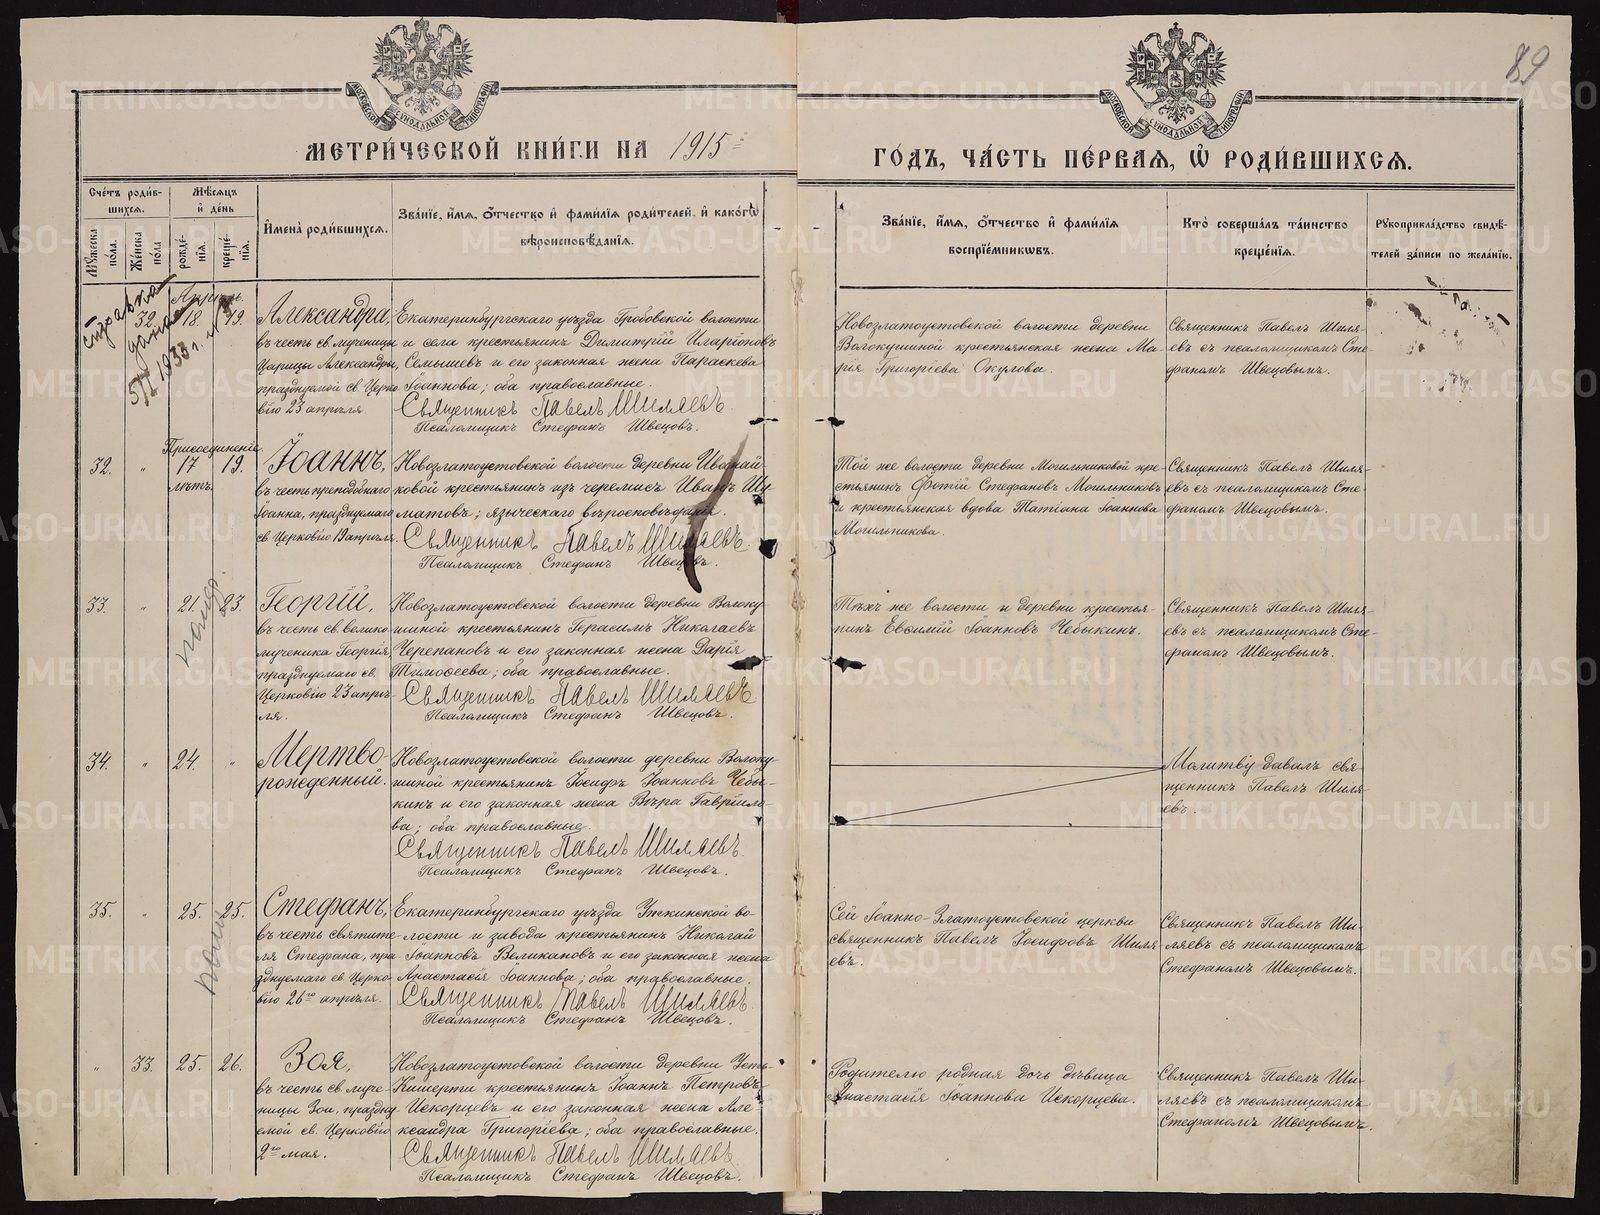 89
МОСКОВСКОЙ СѴНОДАЛЬНОЙ ТИПОГРАФІИ
МОСКОВСКОЙ СѴНОДАЛЬНОЙ ТИПОГРАФІИ
МЕТРИ́ЧЕСКОЙ КНИ́ГИ НА 1915
ГО́ДЪ, ЧА́СТЬ ПЕ́РВАѦ, Ѡ҆ РОДИ́ВШИХСѦ.
Сче́тъ роди́в-
шихсѧ.
Мꙋ́жеска по́ла.
Же́нска по́ла
Мѣ́сѧцъ
и҆ де́нь
рожде́-
нїѧ.
креще́-
нїѧ.
И҆мена̀ роди́вшихсѧ.
Зва́нїе, и҆́мѧ, ѻ҆́тчество и҆ фами́лїѧ роди́телей. и҆ како́гѡ
вѣроисповѣ́данїѧ.
Зва́нїе, и҆́мѧ, ѻ҆́тчество и҆ фами́лїѧ
воспрїе́мниковъ.
Кто̀ соверша́лъ та́инство
креще́нїѧ.
Рꙋкоприкла́дство свидѣ́-
телей за́писи по жела́нїю.
справка
дана
1933 г.
Апрѣль.
32. 18. 19.
Александра,
въ честь св. мученицы
Царицы Александры,
празднуемой св. Церко-
вію 23 апрѣля
Екатеринбургскаго уѣзда Гробовской волости
и села крестьянинъ Димитрій Иларіоновъ
Семышевъ и его законная жена Параскева
Іоаннова; оба православные.
Священникъ Павелъ Шиляевъ.
Псаломщикъ Стефанъ Швецовъ.
Новозлатоустовской волости деревни
Волокушиной крестьянская жена Ма-
рія Григоріева Окулова.
Священникъ Павелъ Шиля-
евъ съ псаломщикомъ Сте-
фаномъ Швецовымъ.
Присоединеніе.
32. " 17 19.
лѣтъ.
Іоаннъ,
въ честь преподобнаго
Іоанна, празднуемаго
св. Церковію 19 апрѣля.
Новозлатоустовской волости деревни
ковой крестьянинъ изъ черемисъ Иванъ
матовъ; языческаго вѣроисповѣданія.
Священникъ Павелъ Шиляевъ
Псаломщикъ Стефанъ Швецовъ.
Той же волости деревни Могильниковой кре-
стьянинъ Фотій Стефановъ Могильниковъ
и крестьянская вдова Татіана Іоаннова
Могильникова.
Священникъ Павелъ Шиля-
евъ съ псаломщикомъ Сте-
фаномъ Швецовымъ.
33. " 21. 23.
Георгій,
въ честь св. велико-
мученика Георгія,
празднуемаго св.
Церковію 23 апрѣ-
ля.
Новозлатоустовской волости деревни Волоку-
шиной крестьянинъ Герасимъ Николаевъ
Черепановъ и его законная жена Дарія
Тимоѳеева; оба православные.
Священникъ Павелъ Шиляевъ
Псаломщикъ Стефанъ Швецовъ.
Тѣхъ же волости и деревни крестья-
нинъ Евѳимій Іоанновъ Чебыкинъ.
Священникъ Павелъ Шиля-
евъ съ псаломщикомъ Сте-
фаномъ Швецовымъ.
34. " 24. "
Мертво-
рожденный.
Новозлатоустовской волости деревни Волоку-
шиной крестьянинъ Іосифъ Іоанновъ Чебы-
кинъ и его законная жена Вѣра Гавріило-
ва; оба православные.
Священникъ Павелъ Шиляевъ.
Псаломщикъ Стефанъ Швецовъ.
Молитву давалъ свя-
щенникъ Павелъ Шиля-
евъ.
35. " 25. 25.
Стефанъ,
въ честь святите-
ля Стефана, пра-
зднуемаго св. Церко-
вію 26го апрѣля.
Екатеринбургскаго уѣзда Уткинской во-
лости и завода крестьянинъ Николай
Іоанновъ Великановъ и его законная жена
Анастасія Іоаннова; оба православные.
Священникъ Павелъ Шиляевъ
Псаломщикъ Стефанъ Швецовъ.
Сей Іоанно-Златоустовской церкви
священникъ Павелъ Іосифовъ Шиля-
евъ.
Священникъ Павелъ Ши-
ляевъ съ псаломщикомъ
Стефаномъ Швецовымъ.
" 33. 25. 26.
Зоя,
въ честь св. муче-
ницы Зои, праздну-
емой св. Церковію
2го мая.
Новозлатоустовской волости деревни Усть-
Кишерти крестьянинъ Іоаннъ Петровъ
Искорцевъ и его законная жена Але-
ксандра Григоріева; оба православные.
Священникъ Павелъ Шиляевъ
Псаломщикъ Стефанъ Швецовъ.
Родителю родная дочь дѣвица
Анастасія Іоаннова Искорцева.
Священникъ Павелъ Ши-
ляевъ съ псаломщикомъ
Стефаномъ Швецовымъ.
METRIKI.GASO-URAL.RU